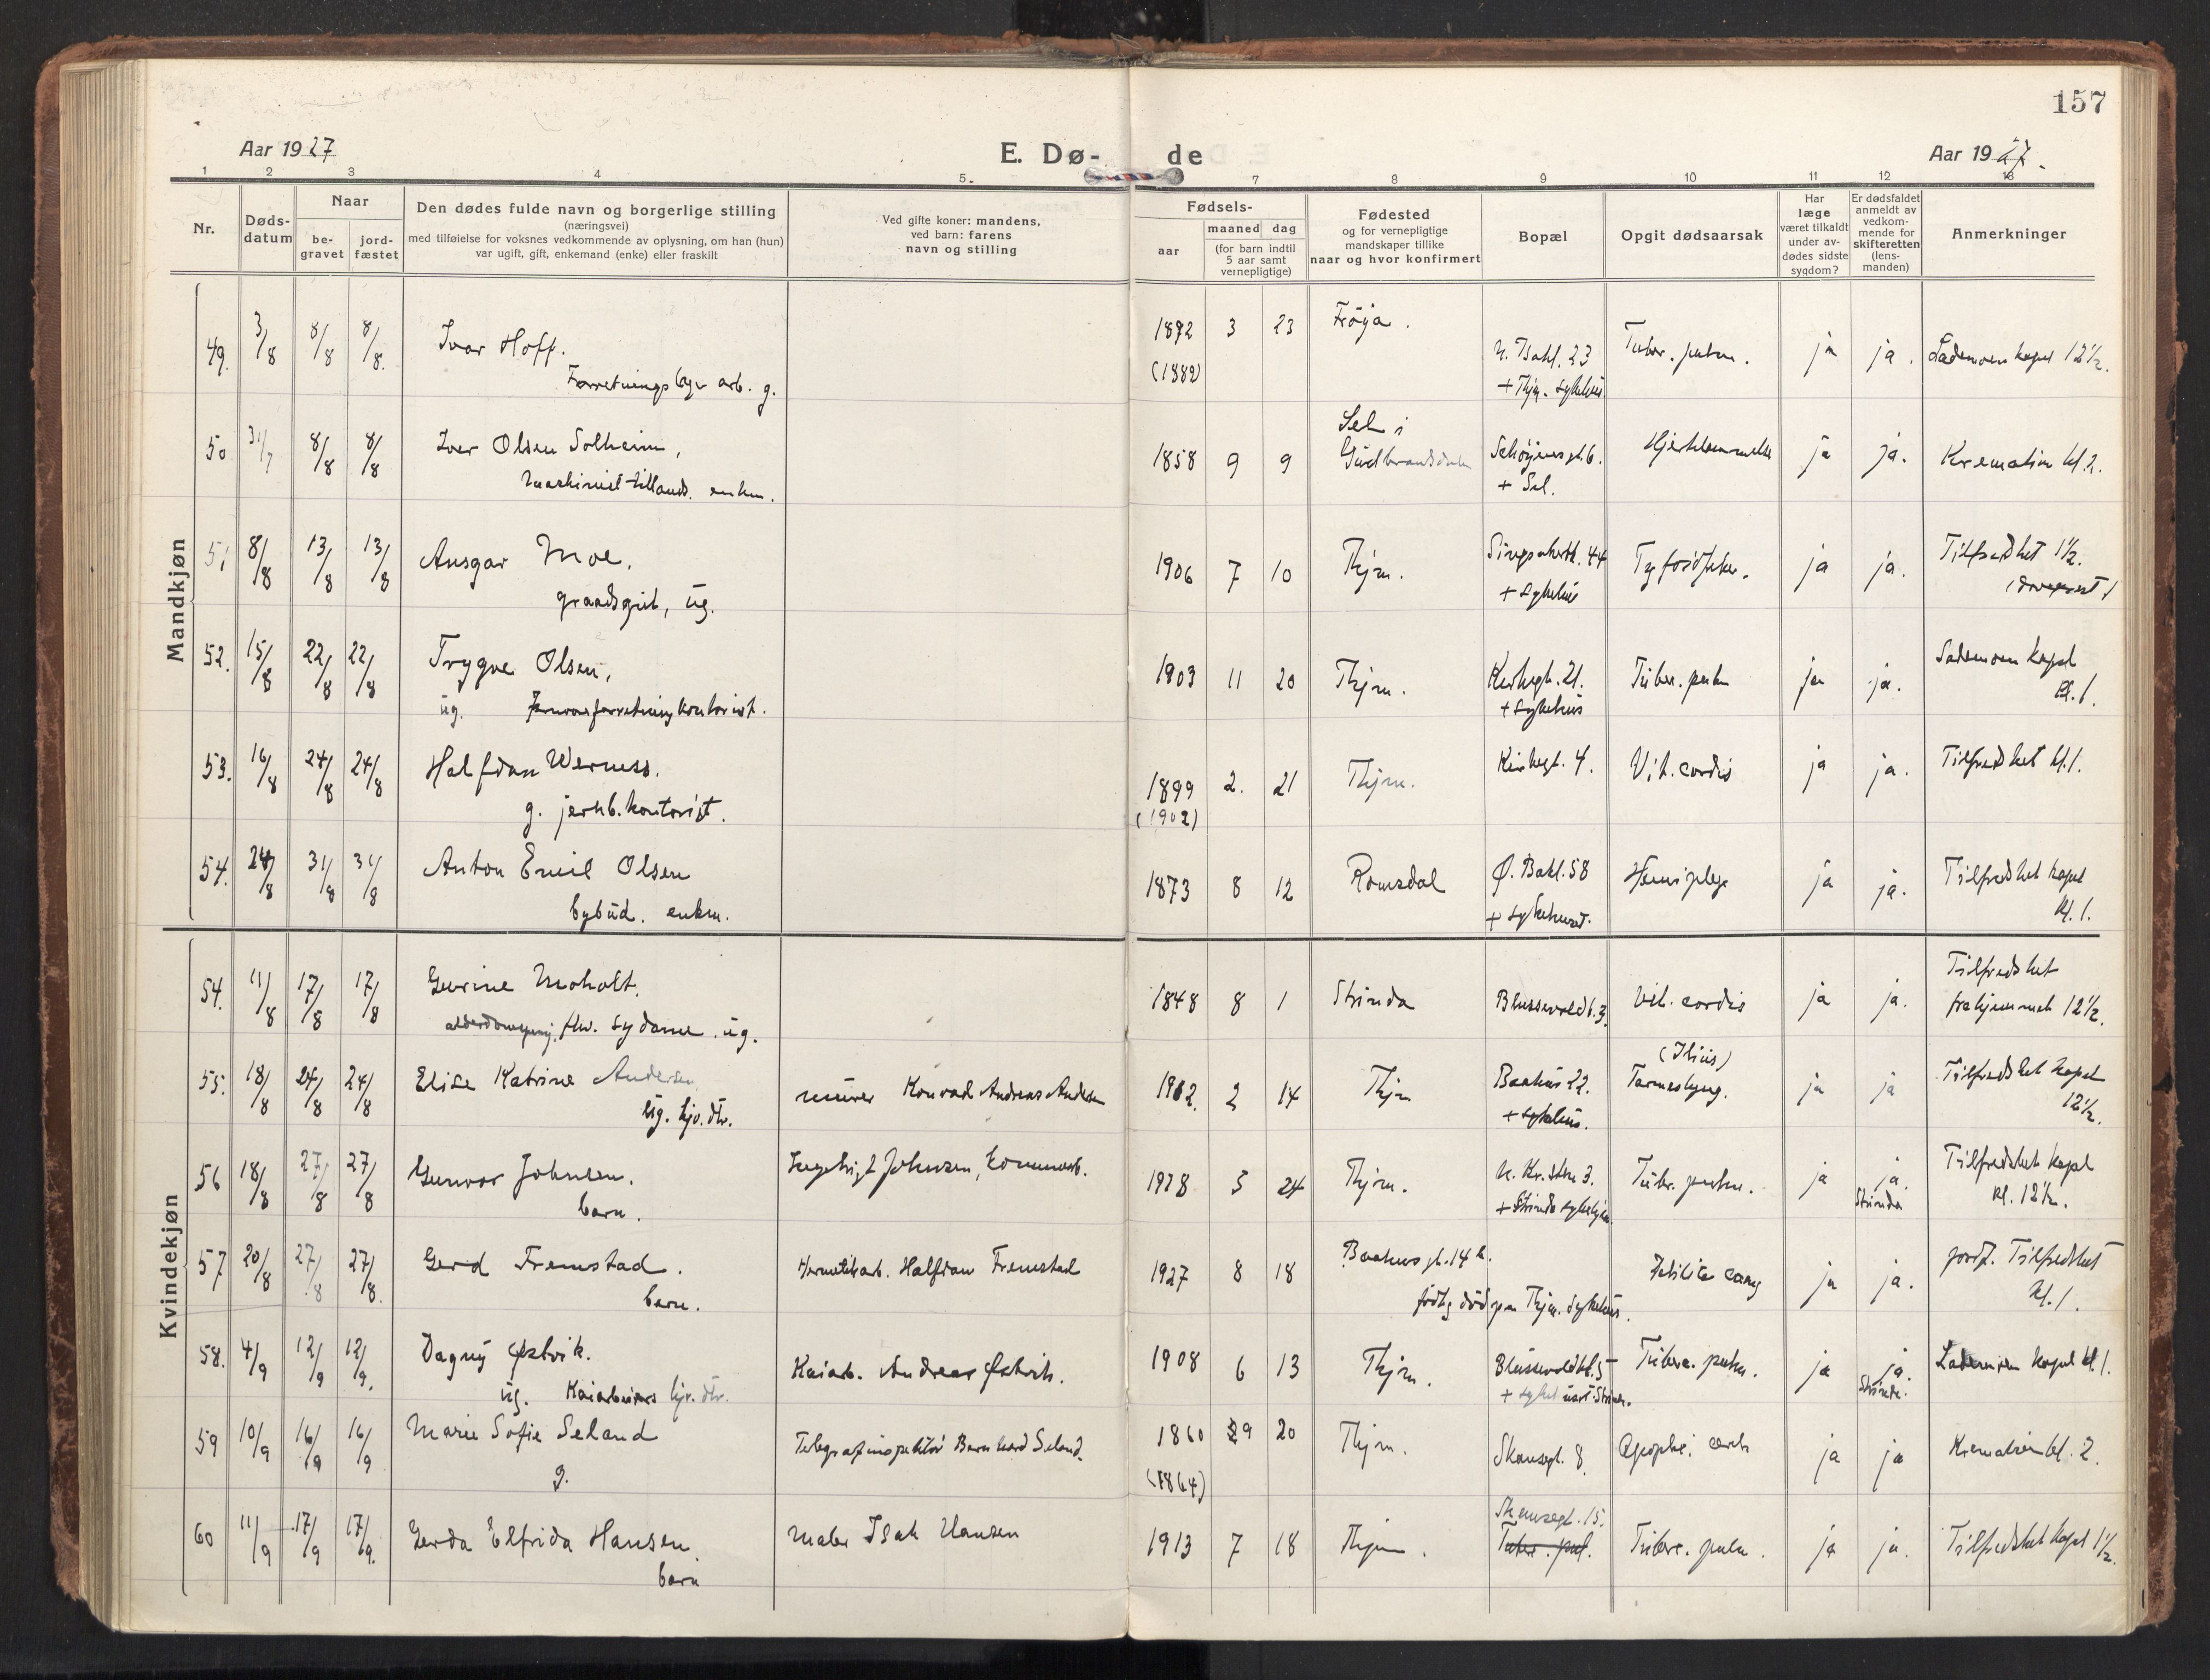 157
Aar 1927
E. Dø-
de
Aar 1927.
1 2 3 4 5. 7 8 9 10 11 12 13
Nr.
Døds-
datum
Naar
be-
gravet
jord-
fæstet
Den dødes fulde navn og borgerlige stilling
(næringsvei)
med tilføielse for voksnes vedkommende av oplysning, om han (hun)
var ugift, gift, enkemand (enke) eller fraskilt
Ved gifte koner: mandens,
ved barn: farens
navn og stilling
Fødsels-
aar
maaned dag
(for barn indtil
5 aar samt
vernepligtige)
Fødested
og for vernepligtige
mandskaper tillike
naar og hvor konfirmert
Bopæl
Opgit dødsaarsak
Har
læge
været tilkaldt
under av-
dødes sidste
sygdom?
Er dødsfaldet
anmeldt av
vedkom-
mende for
skifteretten
(lens-
manden)
Anmerkninger
Mandkjøn
49. 3/8 8/8 8/8. Ivar Hoff. 1892 3 23 Frøya. Tuber. pulm. ja ja. Lademoen kapel 12½.
Forretningsbyr arb. g. (1882) + Thjm. sykehus
50 31/7 8/8 8/8 Iver Olsen Solheim, 1858 9 9 Sel i
Gudbrandsdalen Schøjensgt. 6. ja ja. Kremation kl. 2.
enkm. + Sel.
51 8/8 13/8 13/8 Ansgar Moe. 1906 7 10 Thjm. 44 ja ja. Tilfredshet 1½.
graadsgut, ug. + sykehus
52. 15/8 22/8 22/8 Trygve Olsen, 1903 11 20 Thjm. Kirkegt. 21. Tuber. pulm ja ja. Lademoen kapel
ug. kontorist. + sykehus kl. 1.
53. 16/8 24/8 24/8 Halfdan Werness. 1899 2. 21 Thjm. Kirkegt. 4. Vit. cordis ja ja. Tilfredshet kl. 1.
g. jernb. kontorist. (1902)
54. 24/8 31/8 31/8 Anton Emil Olsen 1873 8 12 Romsdal Ø. Bakl. 58 Hemiplegi ja ja. Tilfredshet kapel
bybud. enkm. + sykehuset. kl. 1.
Kvindekjøn
54. 11/8 17/8 17/8 Gurine Moholt. 1848 8 1 Strinda Blussuvoldsb. 3. Vit. cordis ja ja. Tilfredshet
fhv. sydame. ug. fra hjemmet 12½.
55. 18/8 24/8 24/8 Elise Katrine Andersen murer Konrad Andreas Andersen 1902. 2 14 Thjm Baahus 22. (Ilius) Tarmslyng. ja ja Tilfredshet kapel
ug. hjv. dtr. + sykehus. 12½.
56 18/8 27/8 27/8 Gunvor Johnsen. Ingebrigt Johnsen, kommarb. 1928 5 24 Thjm. 3. Tuber. pulm. ja ja. Strinda Tilfredshet kapel
barn. + Strinda sykehjem kl. 12½.
57 20/8 27/8 27/8. Gerd Fremstad. Hermetikarb. Halfdan Fremstad 1927 8 18 Baahus gt. 14 b. ja ja. jordf. Tilfredshet
barn. født og død paa Thjm. sykehus. kl. 1.
58. 4/9 12/9 12/9. Dagny Østvik. Kaiarb. Andreas Østvik. 1908 6 13 Thjm. Tuberc. pulm. ja ja. Strinda. Lademoen kapel kl. 1.
ug. Kaiarbeiders hjv. dtr.
59 10/9 16/9 16/9 Marie Sofie Seland Telegrafinspektør Bernhard Seland. 1860 9 20 Thjm. Skansegt. 8. ja ja Kremation kl. 2.
g. (1864)
60 11/9 17/9 17/9. Gerda Elfrida Hansen. Maler Isak Hansen 1913 7 18 Thjm. Skansegt. 15. Tuber. pul. Tuberc. pulm. ja ja. Tilfredshet kapel 1½.
barn